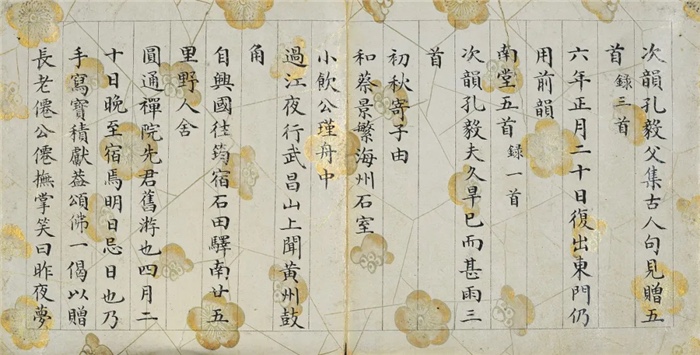 次韻孔毅父集古人句見贈五
首錄三首
六年正月二十日復出東門仍
用前韻
南堂五首錄一首
次韻孔毅夫久旱已而甚雨三
首
初秋寄子由
和蔡景繁海州石室
小飲公瑾舟中
過江夜行武昌山上聞黃州鼓
角
自興國往筠宿石田驛南廿五
里野人舍
圓通禪院先君舊游也四月二
十日晚至宿焉明日忌日也乃
手寫寶積獻葢頌佛一偈以贈
長老僊公僊撫掌笑曰昨夜夢